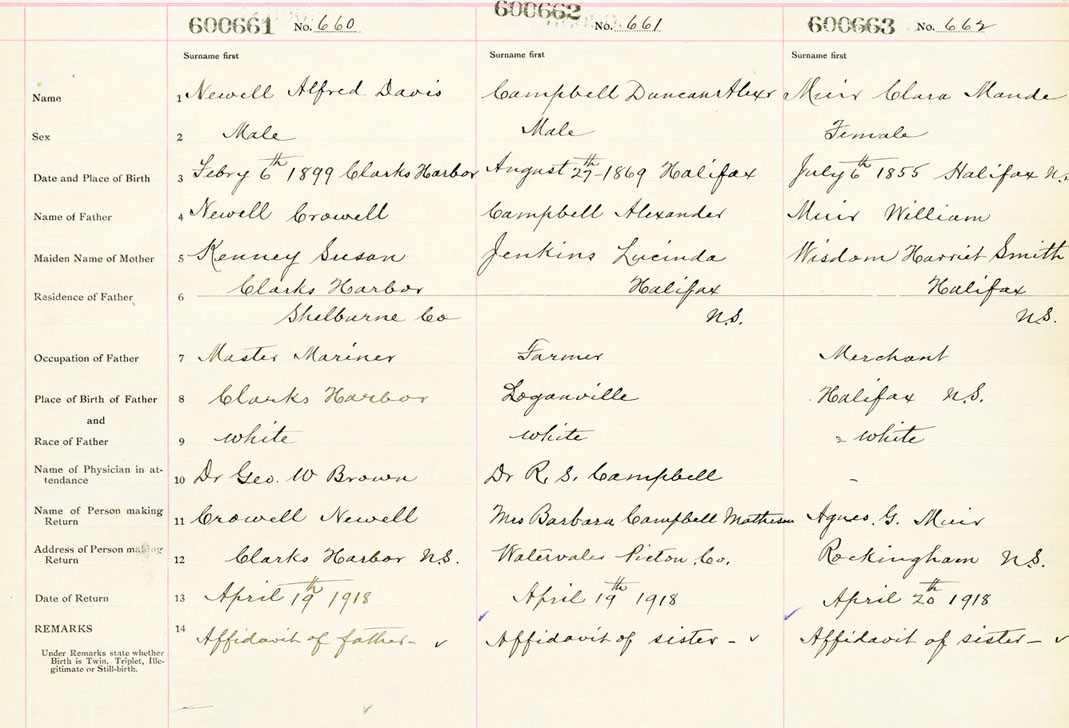 600661 No. 660 600662 No. 661 600663 No. 662
Surname first Surname first Surname first
Name 1 Newell Alfred Davis Campbell Duncan Alexr Muir Clara Maude
Sex 2 Male Male Female
Date and Place of Birth 3 Febry 6th 1899 Clarks Harbor August 27th 1869 Halifax July 6th 1855 Halifax N.S.
Name of Father 4 Newell Crowell Campbell Alexander Muir William
Maiden Name of Mother 5 Kenney Susan Jenkins Lucinda Wisdom Harriet Smith
Residence of Father 6 Clarks Harbor Halifax Halifax
Shelburne Co N.S. N.S.
Occupation of Father 7 Master Mariner Farmer Merchant
Place of Birth of Father 8 Clarks Harbor Loganville Halifax N.S.
and
Race of Father 9 white white white
Name of Physician in at-
tendance 10 Dr Geo. W Brown Dr R. S. Campbell -
Name of Person making
Return 11 Crowell Newell Mrs Barbara Campbell Matheson Agnes. G. Muir
Address of Person making
Return 12 Clarks Harbor N.S. Watervale Picton Co. Rockingham N.S.
Date of Return 13 April 19th 1918 April 19th 1918 April 20th 1918
REMARKS 14 Affidavit of father - ✓ Affidavit of sister - ✓ Affidavit of sister - ✓
Under Remarks state whether
Birth is Twin, Triplet, Ille-
gitimate or Still-birth.